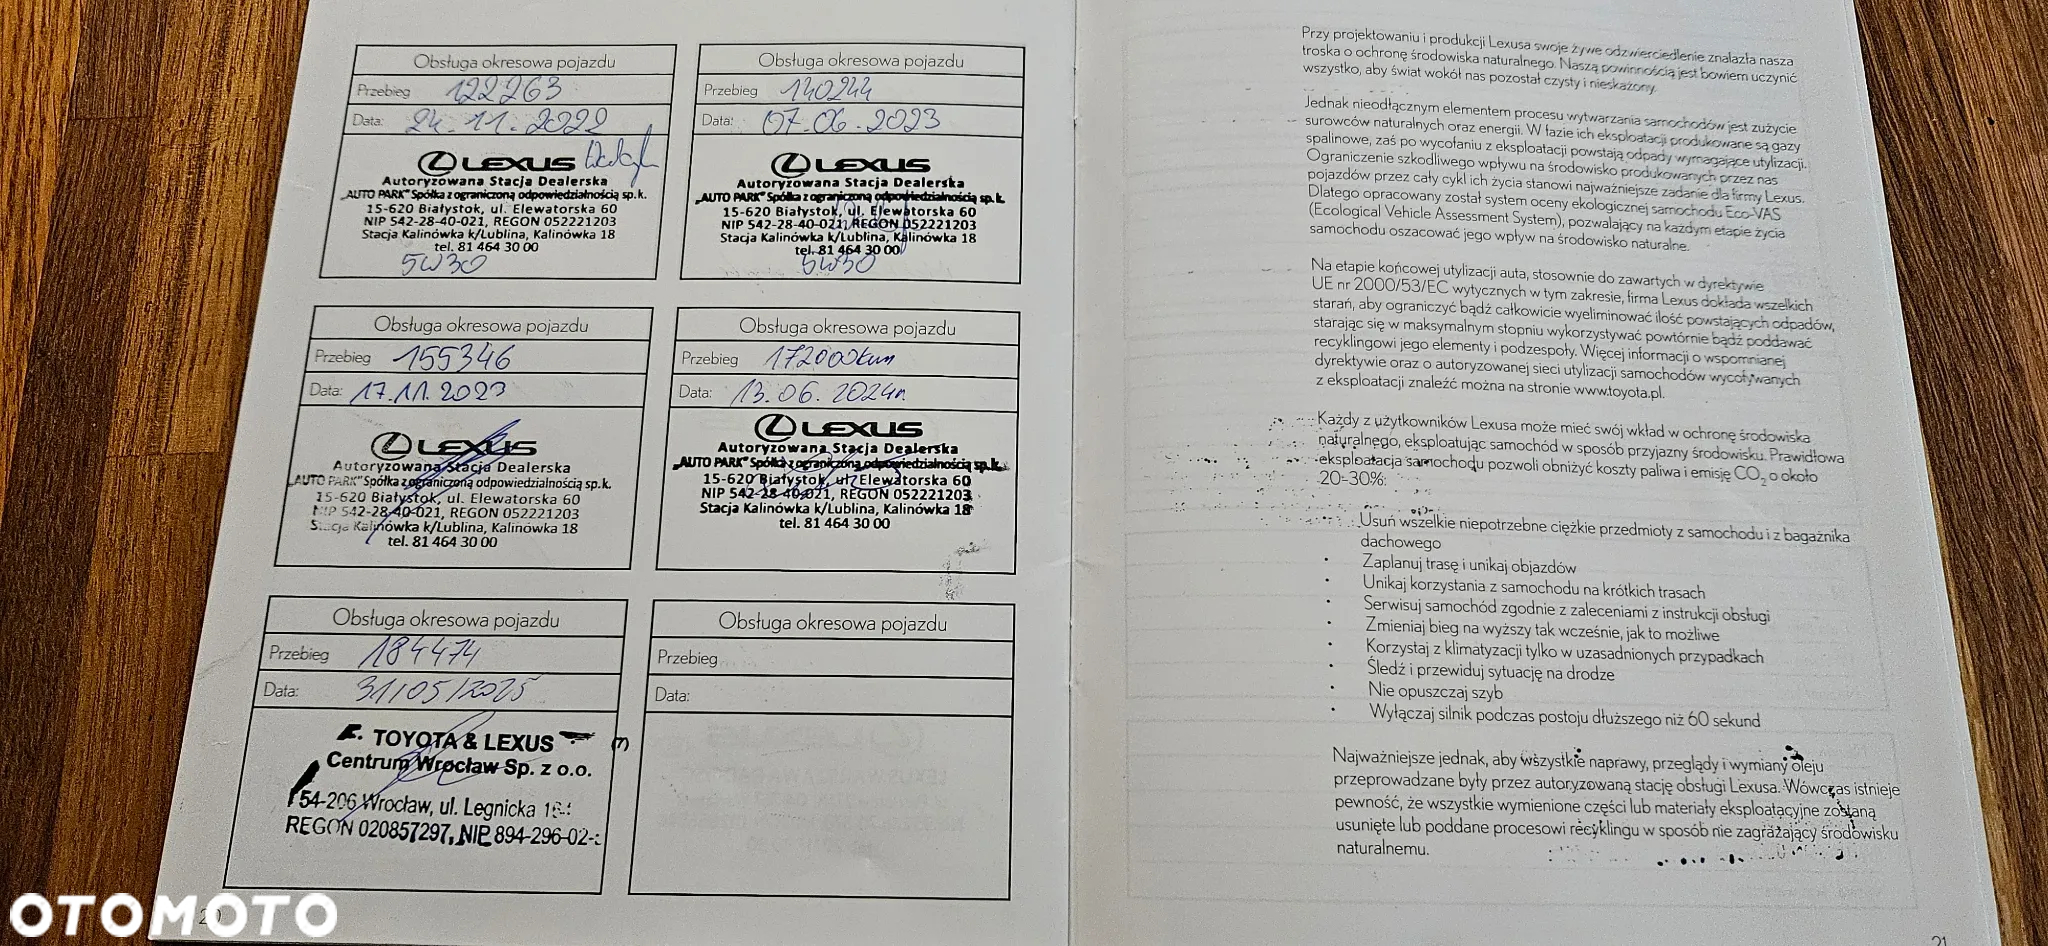 Obsługa okresowa pojazdu
Przebieg 122263
Data: 24.11.2022
LEXUS
Autoryzowana Stacja Dealerska
„AUTO PARK" Spółka z ograniczoną odpowiedzialnością sp.k.
15-620 Białystok, ul. Elewatorska 60
NIP 542-28-40-021, REGON 052221203
Stacja Kalinówka k/Lublina, Kalinówka 18
tel. 81 464 30 00
5W30
Obsługa okresowa pojazdu
Przebieg 140244
Data: 07.06.2023
LEXUS
Autoryzowana Stacja Dealerska
„AUTO PARK" Spółka z ograniczoną odpowiedzialnością sp.k.
15-620 Białystok, ul. Elewatorska 60
NIP 542-28-40-021, REGON 052221203
Stacja Kalinówka k/Lublina, Kalinówka 18
tel. 81 464 30 00
5W30
Obsługa okresowa pojazdu
Przebieg 155346
Data: 17.11.2023
LEXUS
Autoryzowana Stacja Dealerska
„AUTO PARK" Spółka z ograniczoną odpowiedzialnością sp.k.
15-620 Białystok, ul. Elewatorska 60
NIP 542-28-40-021, REGON 052221203
Stacja Kalinówka k/Lublina, Kalinówka 18
tel. 81 464 30 00
Obsługa okresowa pojazdu
Przebieg 172000km
Data: 13.06.2024r
LEXUS
Autoryzowana Stacja Dealerska
„AUTO PARK" Spółka z ograniczoną odpowiedzialnością sp.k.
15-620 Białystok, ul. Elewatorska 60
NIP 542-28-40-021, REGON 052221203
Stacja Kalinówka k/Lublina, Kalinówka 18
tel. 81 464 30 00
Obsługa okresowa pojazdu
Przebieg 184474
Data: 31/05/2025
TOYOTA & LEXUS
Centrum Wrocław Sp. z o.o.
54-206 Wrocław, ul. Legnicka
REGON 020857297, NIP 894-296-02-
Obsługa okresowa pojazdu
Przebieg
Data:
20
Przy projektowaniu i produkcji Lexusa swoje żywe odzwierciedlenie znalazła nasza
troska o ochronę środowiska naturalnego. Naszą powinnością jest bowiem uczynić
wszystko, aby świat wokół nas pozostał czysty i nieskażony.
Jednak nieodłącznym elementem procesu wytwarzania samochodów jest zużycie
surowców naturalnych oraz energii. W fazie ich eksploatacji produkowane są gazy
spalinowe, zaś po wycofaniu z eksploatacji powstają odpady wymagające utylizacji.
Ograniczenie szkodliwego wpływu na środowisko produkowanych przez nas
pojazdów przez cały cykl ich życia stanowi najważniejsze zadanie dla firmy Lexus.
Dlatego opracowany został system oceny ekologicznej samochodu Eco-VAS
(Ecological Vehicle Assessment System), pozwalający na każdym etapie życia
samochodu oszacować jego wpływ na środowisko naturalne.
Na etapie końcowej utylizacji auta, stosownie do zawartych w dyrektywie
UE nr 2000/53/EC wytycznych w tym zakresie, firma Lexus dokłada wszelkich
starań, aby ograniczyć bądź całkowicie wyeliminować ilość powstających odpadów,
starając się w maksymalnym stopniu wykorzystywać powtórnie bądź poddawać
recyklingowi jego elementy i podzespoły. Więcej informacji o wspomnianej
dyrektywie oraz o autoryzowanej sieci utylizacji samochodów wycofywanych
z eksploatacji znaleźć można na stronie www.toyota.pl.
Każdy z użytkowników Lexusa może mieć swój wkład w ochronę środowiska
naturalnego, eksploatując samochód w sposób przyjazny środowisku. Prawidłowa
eksploatacja samochodu pozwoli obniżyć koszty paliwa i emisję CO₂ o około
20-30%:
Usuń wszelkie niepotrzebne ciężkie przedmioty z samochodu i z bagażnika
dachowego
• Zaplanuj trasę i unikaj objazdów
• Unikaj korzystania z samochodu na krótkich trasach
• Serwisuj samochód zgodnie z zaleceniami z instrukcji obsługi
• Zmieniaj bieg na wyższy tak wcześnie, jak to możliwe
• Korzystaj z klimatyzacji tylko w uzasadnionych przypadkach
• Śledź i przewiduj sytuację na drodze
• Nie opuszczaj szyb
• Wyłączaj silnik podczas postoju dłuższego niż 60 sekund
Najważniejsze jednak, aby wszystkie naprawy, przeglądy i wymiany oleju
przeprowadzane były przez autoryzowaną stację obsługi Lexusa. Wówczas istnieje
pewność, że wszystkie wymienione części lub materiały eksploatacyjne zostaną
usunięte lub poddane procesowi recyklingu w sposób nie zagrażający środowisku
naturalnemu.
21
OTOMOTO